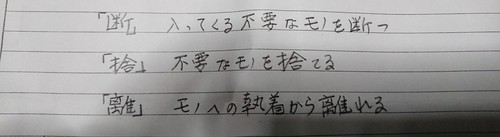 「断」 入ってくる不要なモノを断つ
「捨」 不要なモノを捨てる
「離」 モノへの執着から離れる